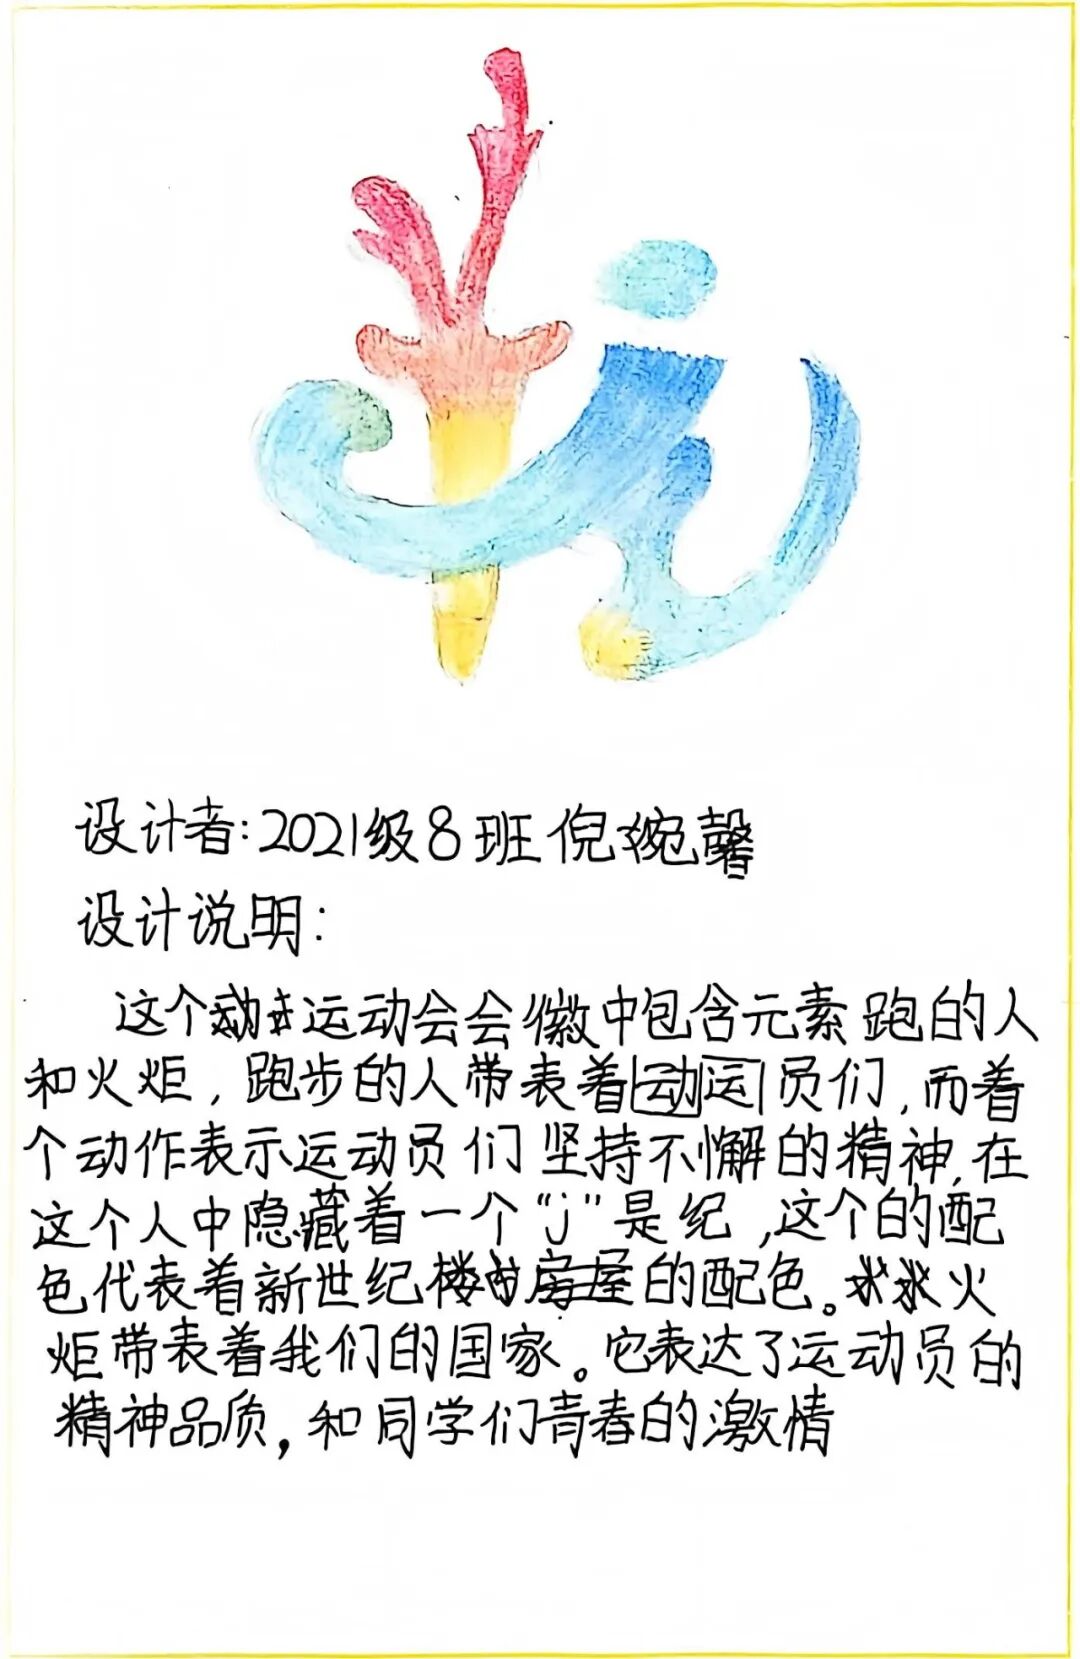 设计者：2021级8班 倪婉馨
设计说明：
这个运动会会徽中包含元素跑的人
和火炬，跑步的人带表着动运员们，而着
个动作表示运动员们坚持不懈的精神，在
这个人中隐藏着一个“j”是纪，这个的配
色代表着新世纪楼的房屋的配色。火
炬带表着我们的国家。它表达了运动员的
精神品质，和同学们青春的激情